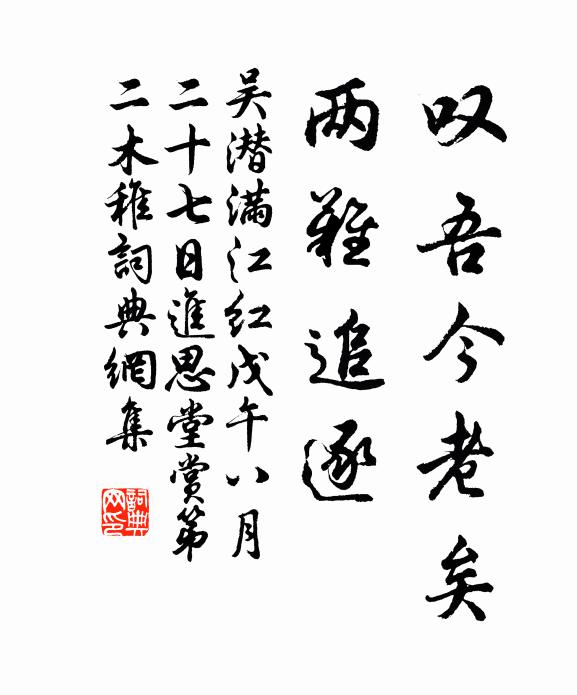 叹吾今老矣
两难追逐
吴潜满江红戊午八月
二十七日進思堂赏第
二木稚詞典網集
詞典
网印